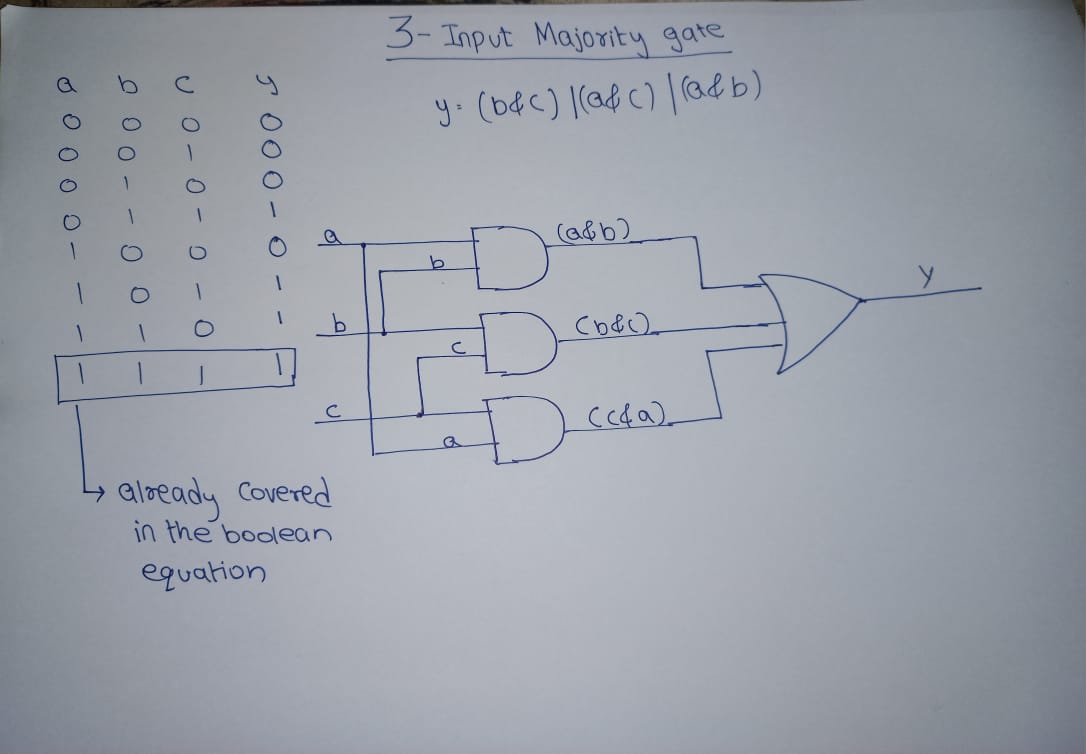 3- Input Majority gate
y = (b&c) |(a&c) |(a&b)
a b c y
0 0 0 0
0 0 1 0
0 1 0 0
0 1 1 1
1 0 0 0
1 0 1 1
1 1 0 1
1 1 1 1
already covered
in the boolean
equation
a
b
(a&b)
b
c
(b&c)
c
a
(c&a)
y